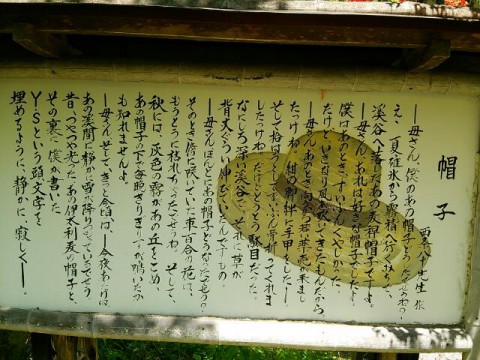 帽子
西条八十先生 作
―母さん、僕のあの帽子どうしたでせうね?
ええ、夏碓氷から霧積へ行くみちで、
渓谷へ落したあの麦稈帽子ですよ。
―母さん、あれは好きな帽子でしたよ。
僕はあのときずいぶんくやしかった。
だけどいきなり風が吹いてきたもんだから。
―母さん、あのとき向から若い薬売が来まし
たっけね。紺の脚絆に手甲をした―
そして拾はうとしてずいぶん骨折ってくれま
したっけね。だけどとうとう駄目だった。
なにしろ深い渓谷で、それに草が
背丈ぐらい伸びていたんですもの
―母さんほんとにあの帽子どうなったでせう?
そのとき傍に咲いていた車百合の花は、
もうとうに枯れちゃったでせうね。そして、
秋には、灰色の霧があの丘をこめ、
あの帽子の下で毎晩きりぎりすが鳴いたか
も知れませんよ。
―母さんそしてきっと今頃は、―今夜あたりは、
あの渓間に静かに雪が降りつもっているでせう。
昔、つやつや光ったあの伊太利麦の帽子と、
その裏に僕が書いた
YSという頭文字を
埋めるように、静かに、寂しく―。